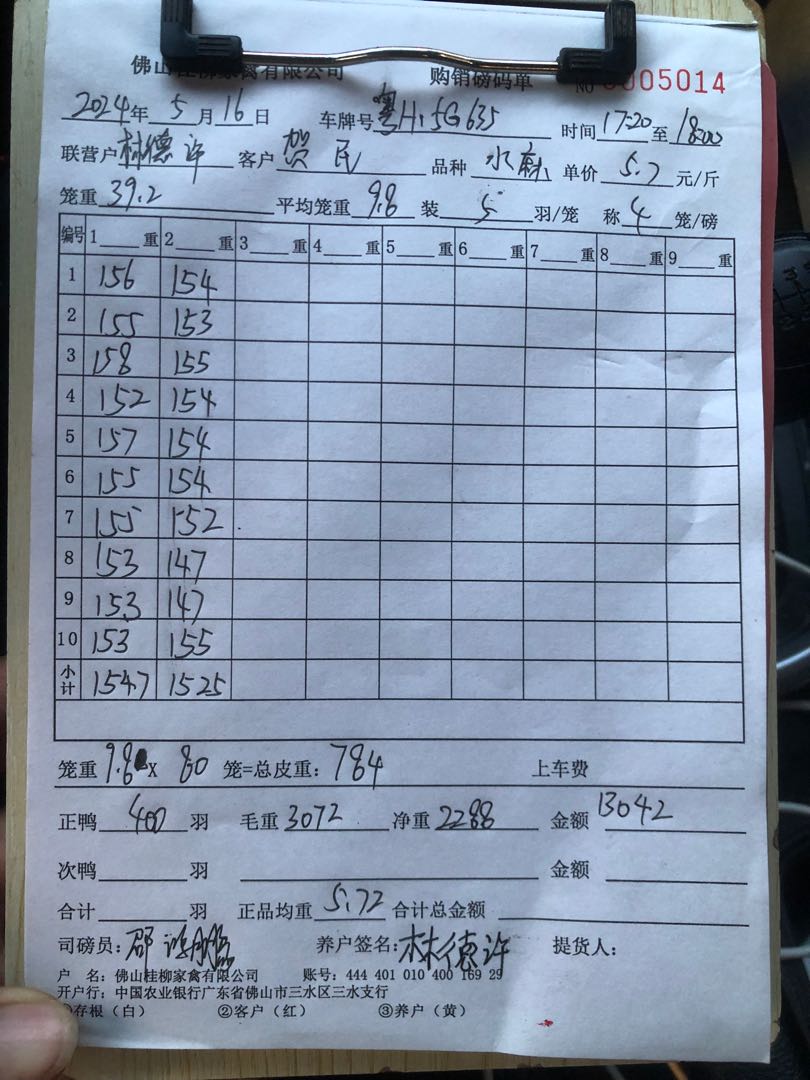 佛山桂柳家禽有限公司 购销磅码单 NO 0005014
2024年 5月16日 车牌号 粤H15G635 时间 17:20 至 18:00
联营户 林德许 客户 贺民 品种 水麻 单价 5.7 元/斤
笼重 39.2 平均笼重 9.8 装 5 羽/笼 称 4 笼/磅
编号 1 重 2 重 3 重 4 重 5 重 6 重 7 重 8 重 9 重
1 156 154
2 155 153
3 158 155
4 152 154
5 157 154
6 155 154
7 155 152
8 153 147
9 153 147
10 153 155
小计 1547 1525
笼重 9.8 X 80 笼=总皮重: 784 上车费
正鸭 400 羽 毛重 3072 净重 2288 金额 13042
次鸭 羽 金额
合计 羽 正品均重 5.72 合计总金额
司磅员: 邵 养户签名: 林德许 提货人:
户 名: 佛山桂柳家禽有限公司 账号: 444 401 010 400 169 29
开户行: 中国农业银行广东省佛山市三水区三水支行
①存根(白) ②客户(红) ③养户(黄)